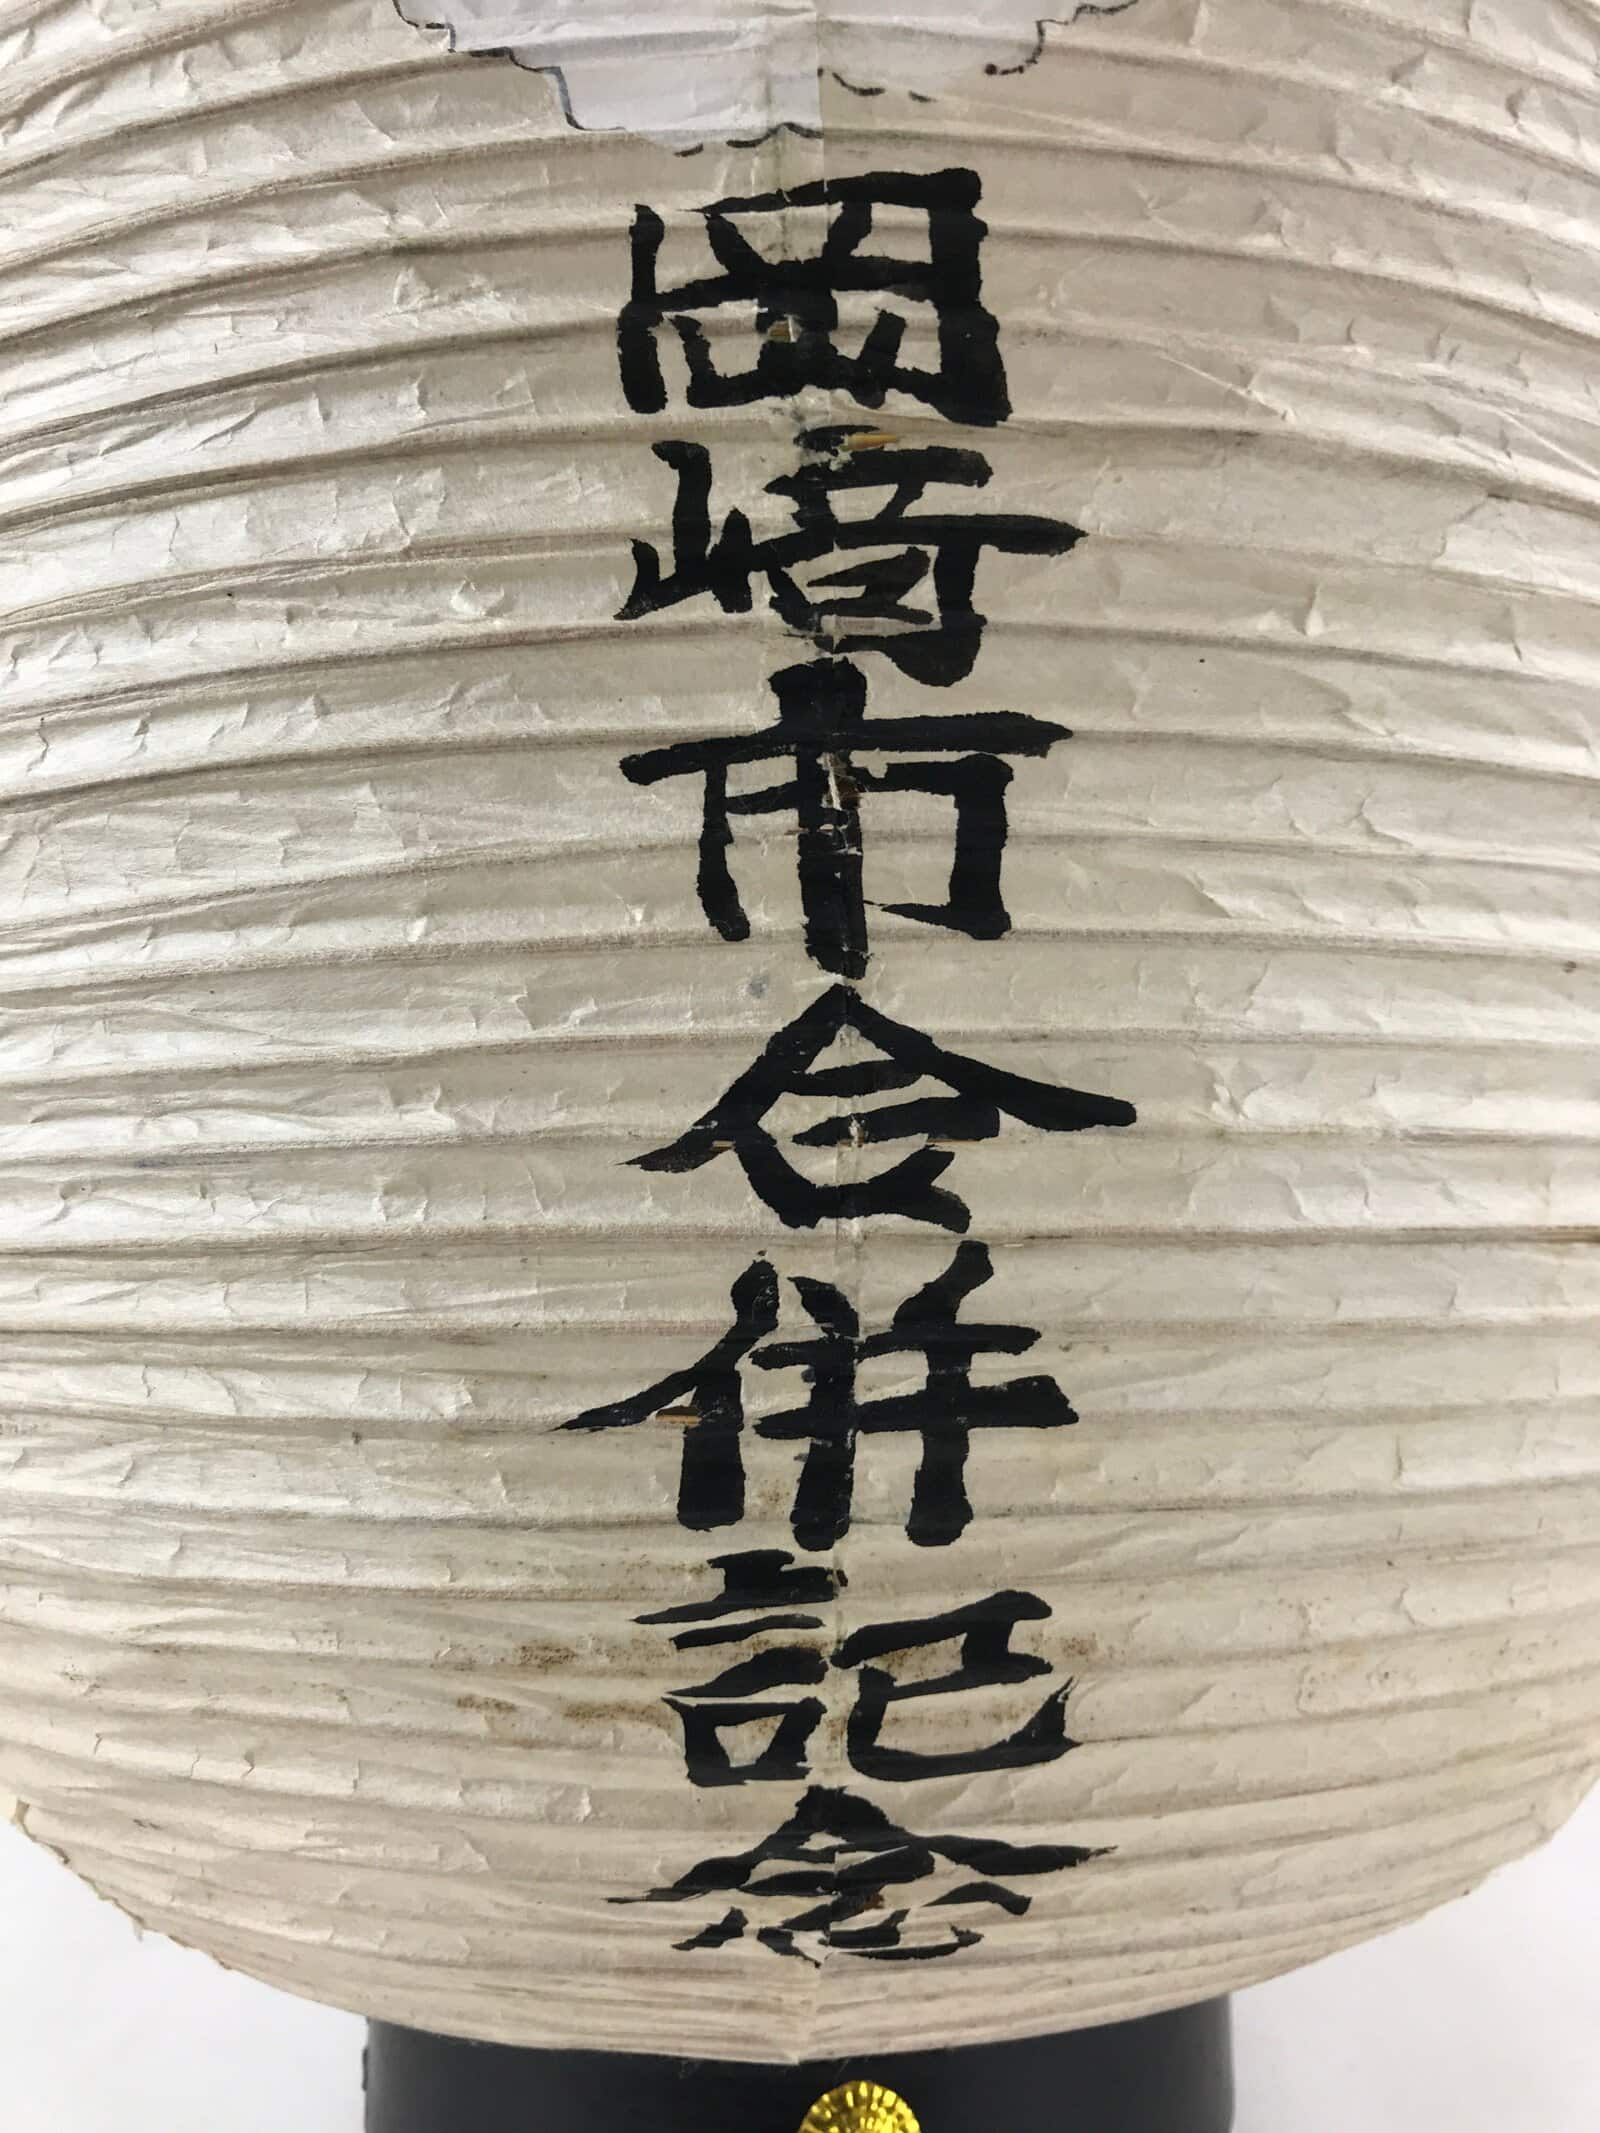 岡崎市合併記念